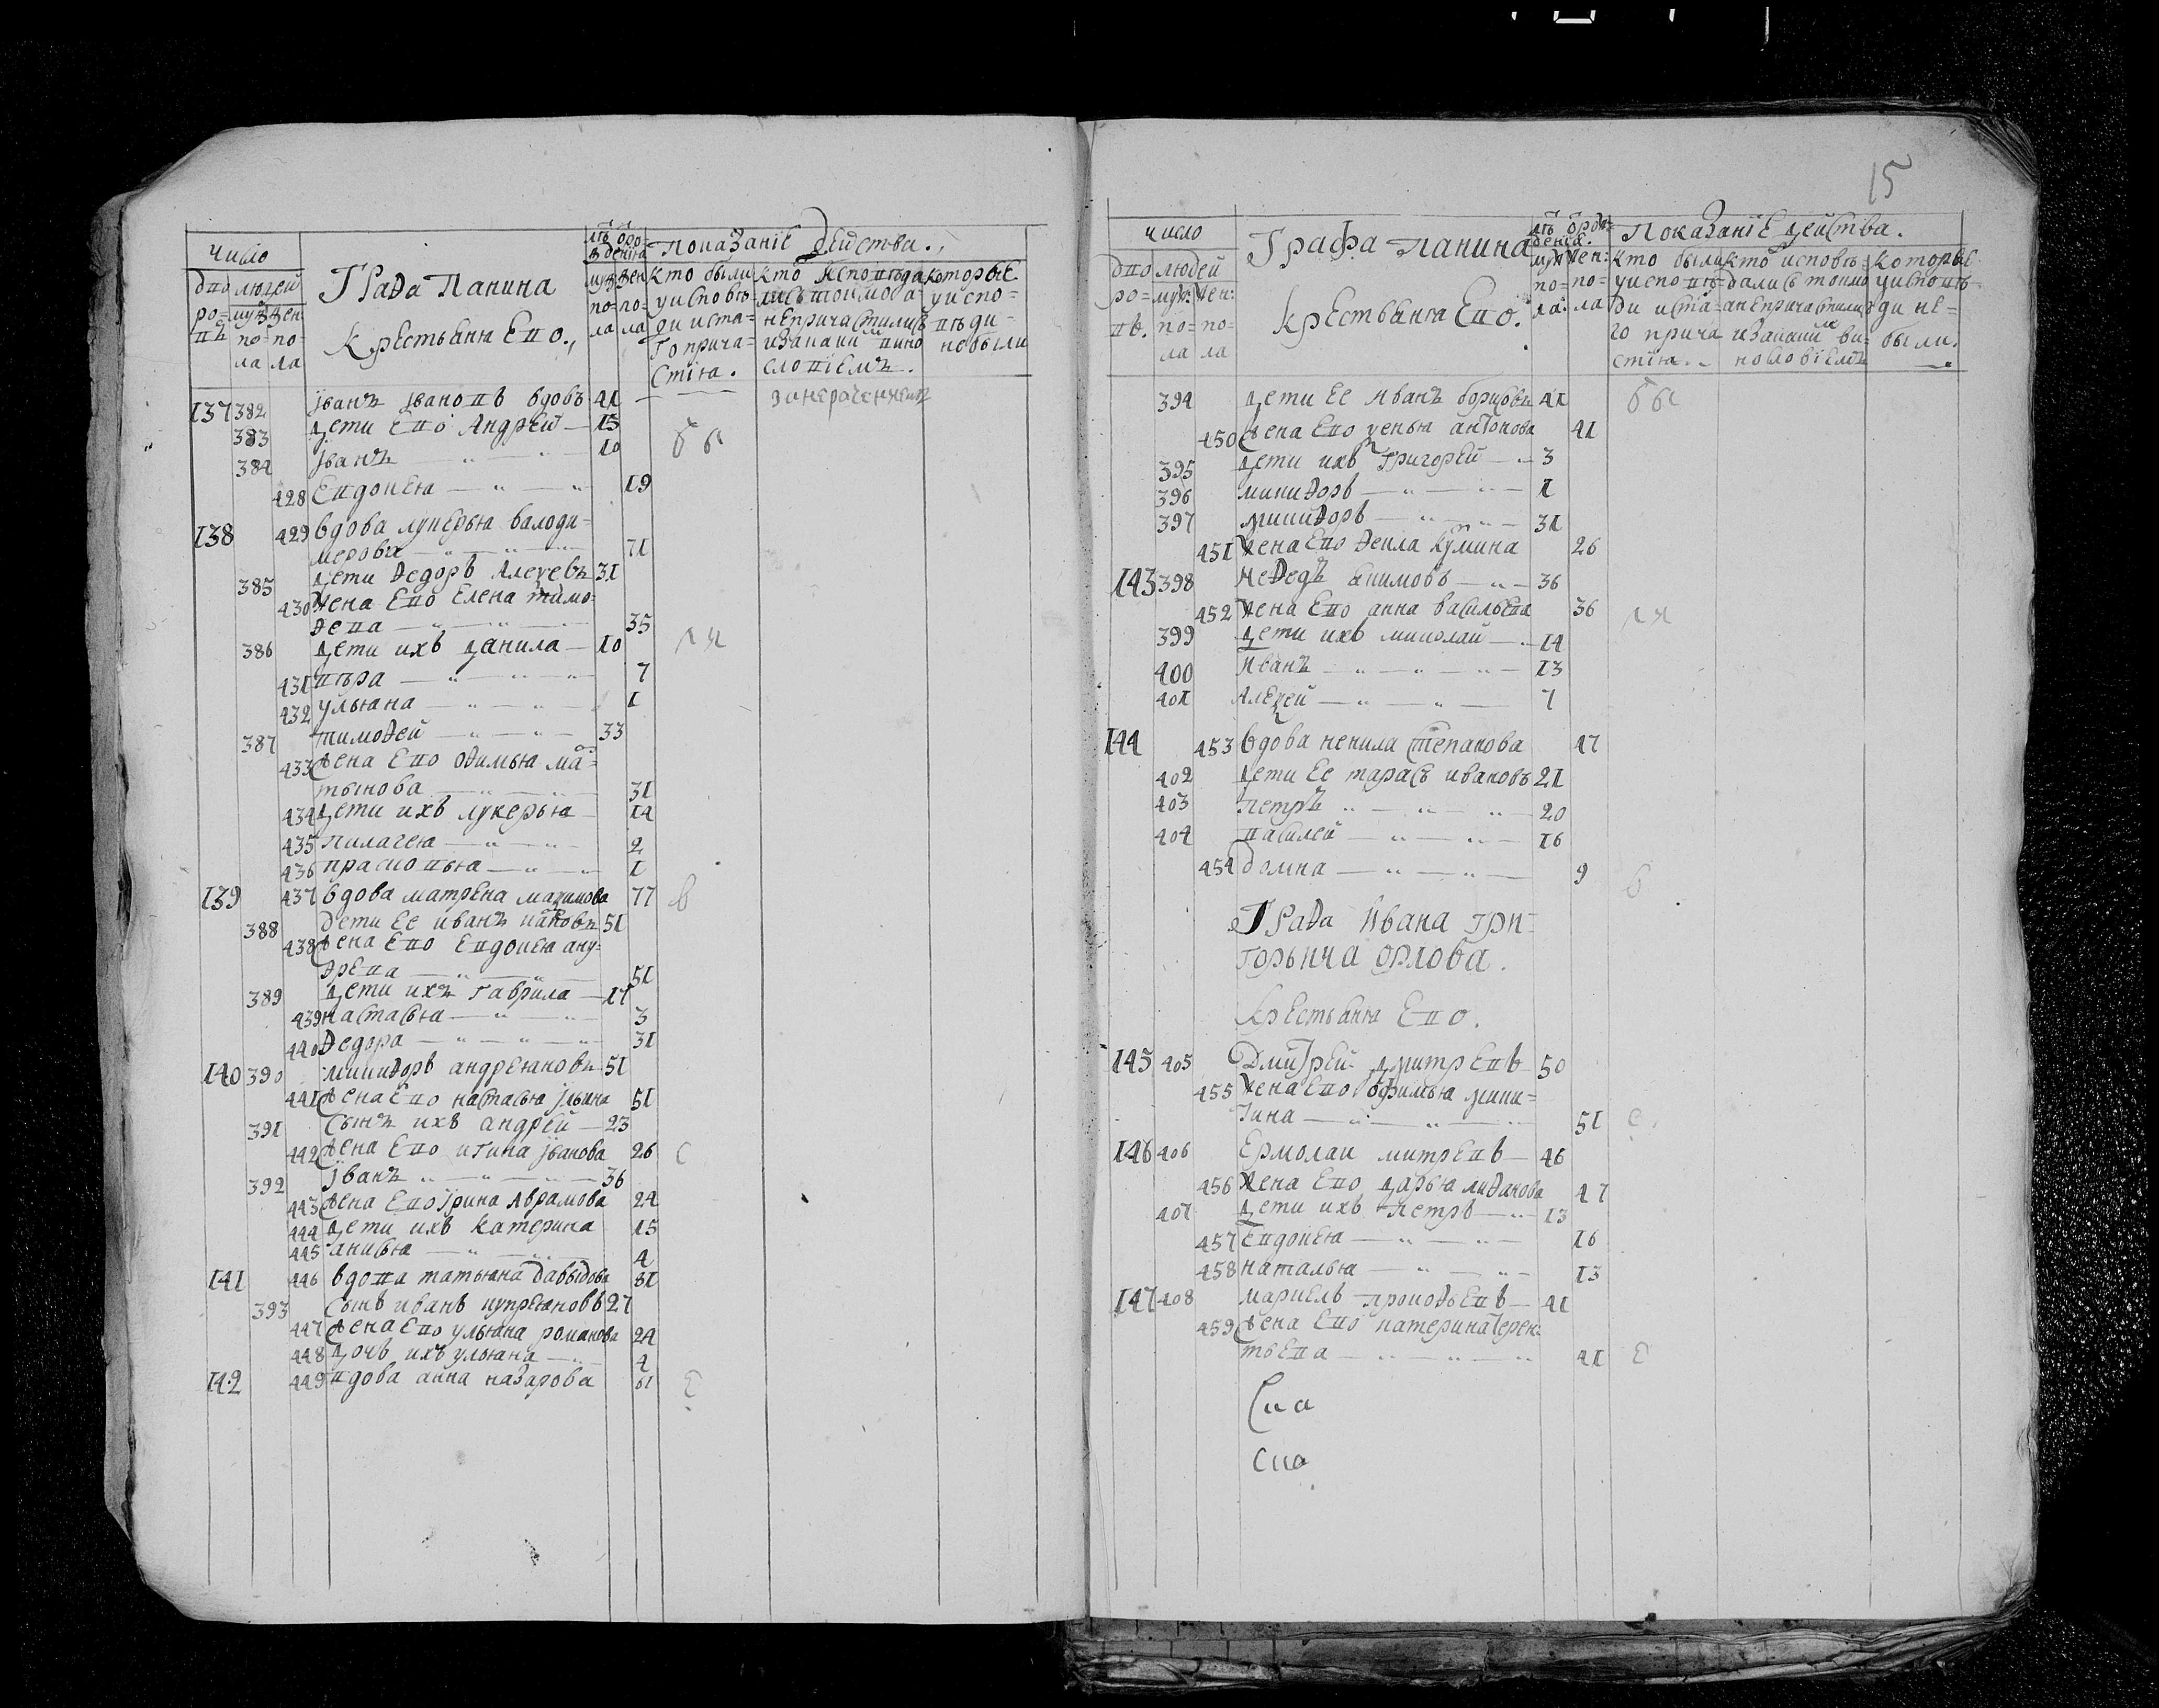 число
лѣтъ ѿ рождения
показаниE действа.,
дво людей
ро=
въ
муж: жен:
по= по=
ла ла
Графа Панина
крестьяня Ево.,
муж жен
по= по=
ла ла
кто были
у исповѣ=
ди и ста=
го прича=
стия.
кто исповеда
лись токмо а
не причастилис
и закаким вино
словiемъ.
которые
у испо=
вѣди=
не были
137 382 Iванъ Iвановъ вдовъ 41 занерачениемъ
383 дети Ево Андрей 15 бы
384 Iванъ 10
428 Евдокея 19
138 429 вдова лукерья валоди=
мерова 71
385 дети Федоръ Алеѯевъ 31
430 жена Ево Елена тимо=
фева 35
386 дети ихъ данила 10
431 вѣра 7
432 ульяна 1
387 тимофей 33
433 жена Ево офимья ма=
тынова 31
434 дети ихъ лукерья 14
435 пилагея 2
436 прасковья 1
139 437 вдова матрена маѯимова 77 в
388 дети ее иванъ иаковъ 51
438 жена Ево Евдокея ану=
фрева 51
389 дети ихъ гаврила 17
439 настасья 3
440 федора 31
140 390 микифоръ андреяновъ 51
441 жена Ево настасья Iльина 51
391 сынъ ихъ андрей 23
442 жена Ево игина Iванова 26 с
392 Iванъ 36
443 жена Ево Iрина Аврамова 24
444 дети ихъ катерина 15
445 анисья 4
141 446 вдова татьяна давыдова 81
393 сынъ иванъ купреяновъ 27
447 жена Ево ульяна романова 24
448 дочь ихъ ульяна 4
142 449 вдова анна назарова 61 Е
15
число
лѣтъ ѿ рож
дения.
ПоказанiЕ действа.
дво людей
ро= муж: жен:
въ. по= по=
ла ла
Графа Панина
крестьяня Ево.
муж жен:
по= по=
ла: ла
кто были
у исповѣ=
ди и ста=
го прича
стия.
кто исповѣ=
дались токмо
а непричастилис
и закаким ви=
нословiемъ
которые
у исповѣ=
ди не=
были.
394 дети ее Иванъ борисовъ 41 бы
450 жена Ево ѯенья антонова 41
395 дети ихъ Григорей 3
396 микифоръ 1
397 микифоръ 31
451 жена Ево фекла кузмина 26
143 398 нефедъ екимовъ 36
452 жена Ево анна васильева 36
399 дети ихъ миколай 14
400 Иванъ 13
401 Алеѯей 7
144 453 вдова ненила степанова 47
402 дети ее тарасъ ивановъ 21
403 петръ 20
404 василей 16
454 домна 9 б
Графа Ивана гри=
горьича орлова.
крестьяня Ево.
145 405 Дмитрей дмитревъ 50
455 жена Ево офимья мики=
тина 51 с
146 406 Ермолаи митревъ 46
456 жена Ево дарья лифанова 47
407 дети ихъ петръ 13
457 Евдокея 16
458 наталья 13
147 408 маркелъ прокофьевъ 41
459 жена Ево катерина терен=
тьева 41 Е
Ска
ска